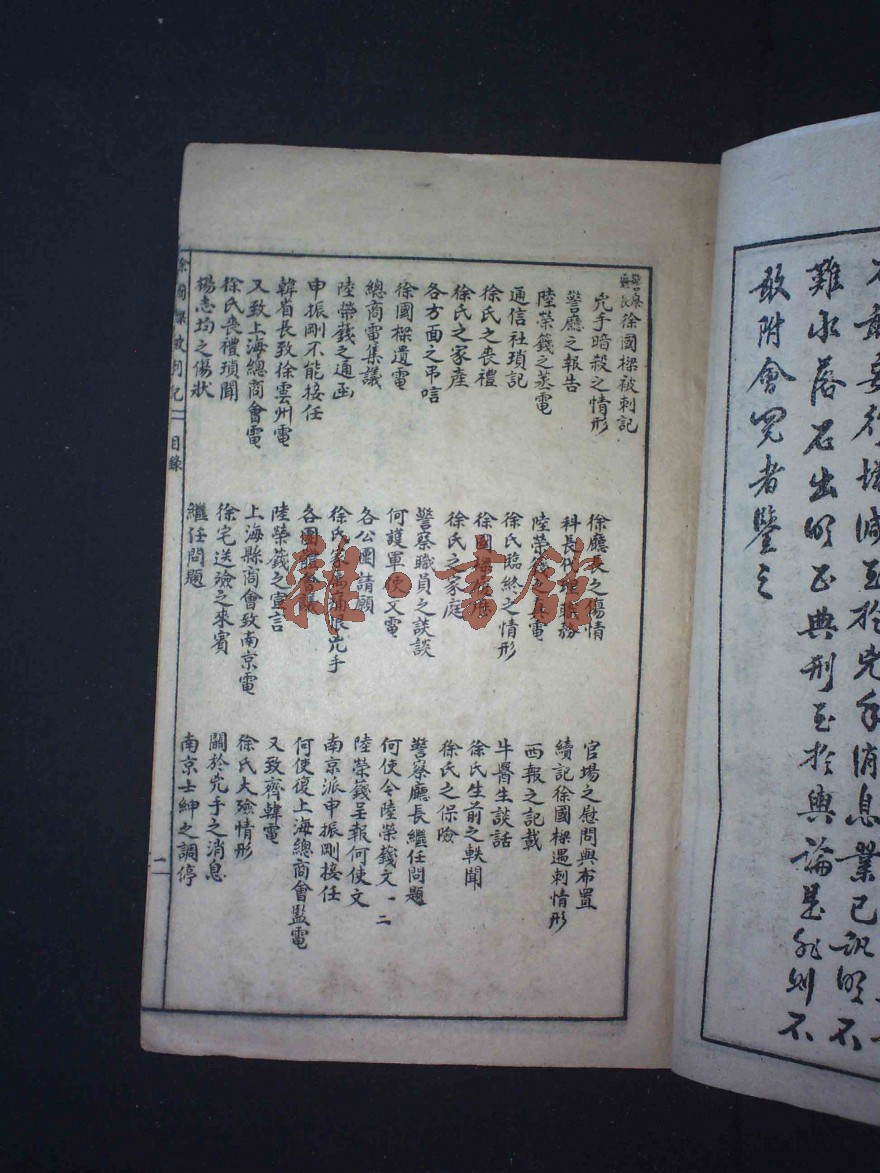 不敢妄行增減至於兇手消息業已訊明不
難水落石出明正典刑至於輿論是非則不
敢附會閱者鑒之
警察廳長徐國樑被刺記
兇手暗殺之情形
徐廳長之傷情
官場之慰問與布置
警廳之報告
科長代理職務
續記徐國樑遇刺情形
陸榮籛之蒸電
陸榮籛之真電
西報之記載
通信社瑣記
徐氏臨終之情形
牛醫生談話
徐氏之喪禮
徐國樑
徐氏生前之軼聞
徐氏之家產
徐氏之家庭
徐氏之保險
各方面之弔唁
警察職員之談談
警察廳長繼任問題
徐國樑遺電
何護軍使文電
何使令陸榮籛文一二
總商電集議
各公團請願
陸榮籛呈報何使文
陸榮籛之通函
徐氏家屬痛恨兇手
南京派申振剛接任
申振剛不能接任
各團體會議
何使復上海總商會監電
韓省長致徐雲州電
陸榮籛之宣言
又致齊韓電
又致上海總商會電
上海縣商會致南京電
徐氏大殮情形
徐氏喪禮瑣聞
徐宅送殮之來賓
關於兇手之消息
楊志均之傷狀
繼任問題
南京士紳之調停
徐國樑被刺記 目錄 二
雜·書館